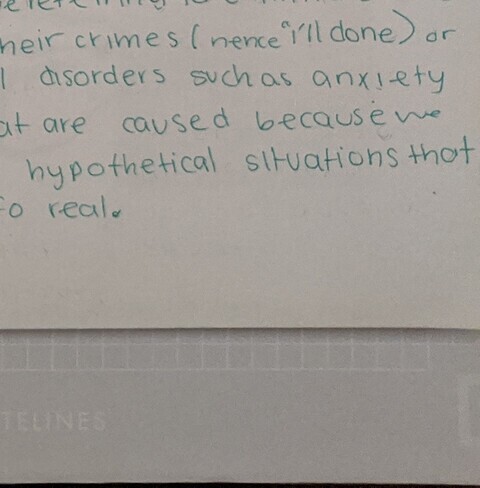 heir crimes (hence "i'll done) or
l disorders such as anxiety
at are caused because we
hypothetical situations that
o real.
TELINES